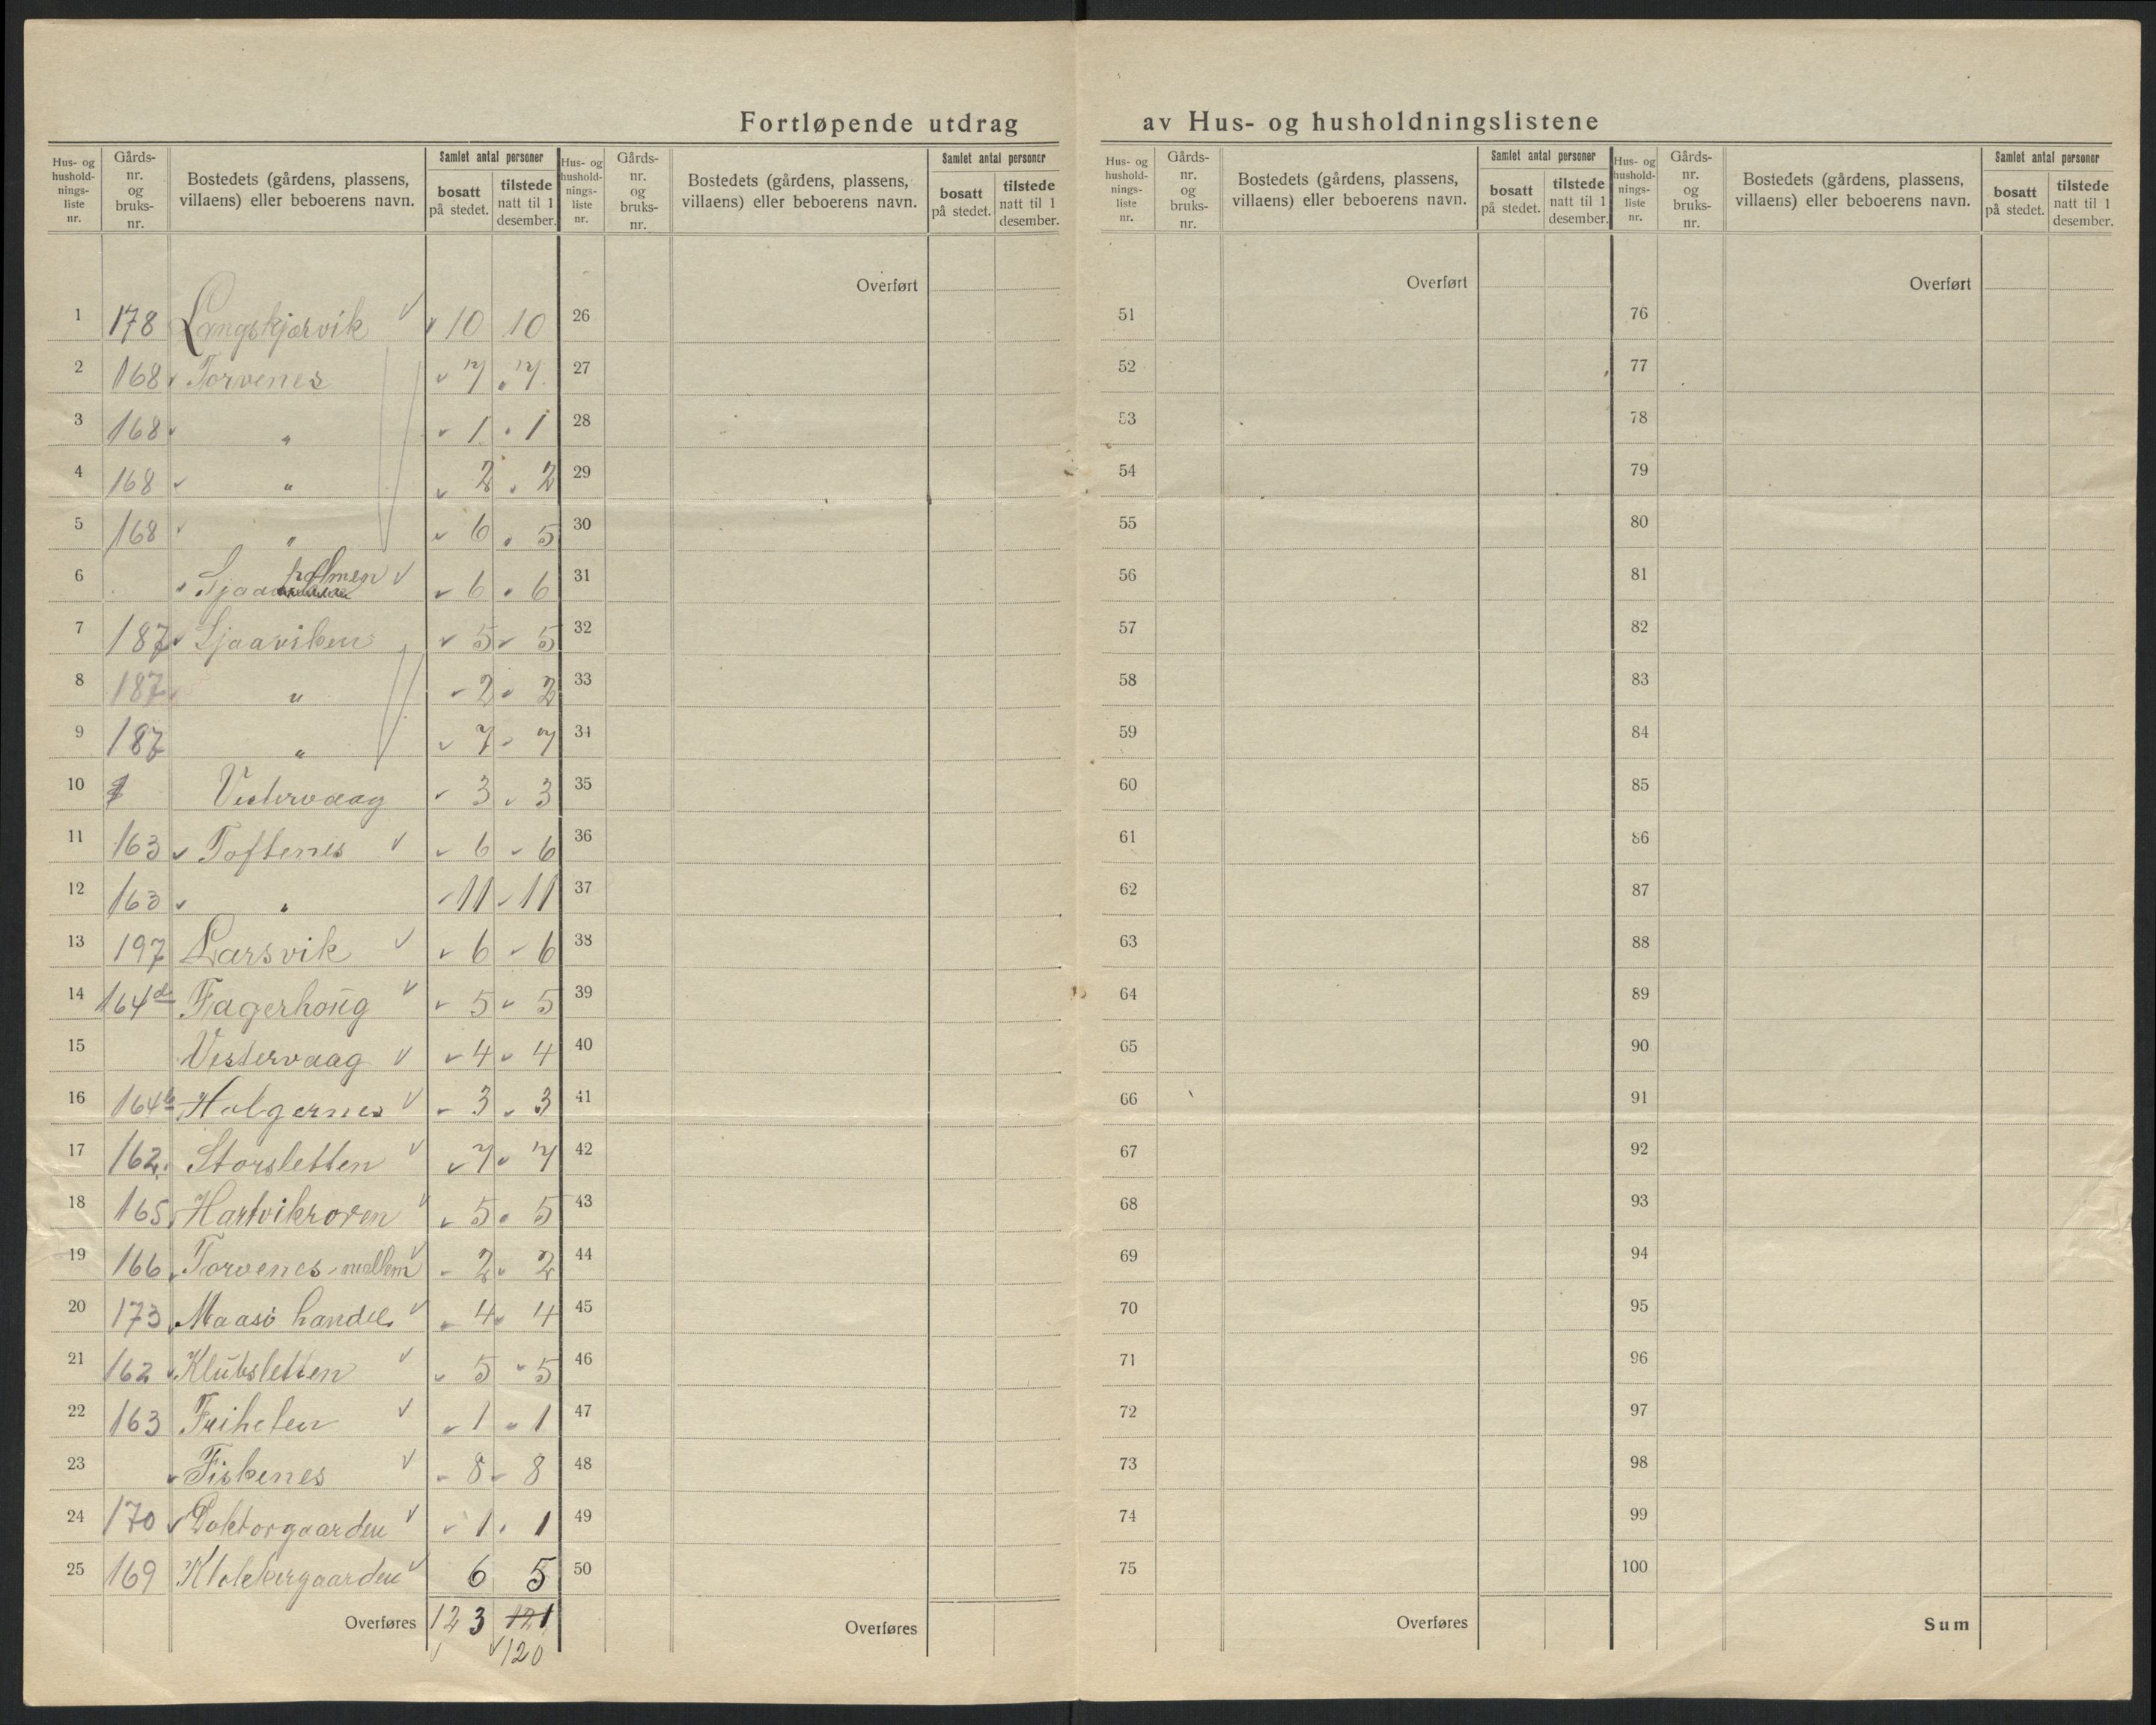 Fortløpende utdrag av Hus- og husholdningslistene
Hus- og hushold-nings-liste nr. Gårds-nr. og bruks-nr. Bostedets (gårdens, plassens, villaens) eller beboerens navn. Samlet antal personer bosatt på stedet. tilstede natt til 1 desember.
1 178 Langskjærvik 10 10
2 168 Torvenes 7 7
3 168 " 1 1
4 168 " 2 2
5 168 " 6 5
6 Sjaaholmen 6 6
7 187 Sjaaviken 5 5
8 187 " 2 2
9 187 " 7 7
10 Vestervaag 3 3
11 163 Toftenes 6 6
12 163 " 11 11
13 197 Larsvik 6 6
14 164d Fagerhoug 5 5
15 Vestervaag 4 4
16 164b Holgernes 3 3
17 162 Storsletten 7 7
18 165 Hartvikroren 5 5
19 166 Torvenes mellem 2 2
20 173 Maasö handel 4 4
21 162 Klubsletten 5 5
22 163 Friheten 1 1
23 Fiskenes 8 8
24 170 Doktorgaarden 1 1
25 169 Klokkergaarden 6 5
Overføres 123 121
120
Hus- og hushold-nings-liste nr. Gårds-nr. og bruks-nr. Bostedets (gårdens, plassens, villaens) eller beboerens navn. Samlet antal personer bosatt på stedet. tilstede natt til 1 desember.
Overført
26
27
28
29
30
31
32
33
34
35
36
37
38
39
40
41
42
43
44
45
46
47
48
49
50
Overføres
Hus- og hushold-nings-liste nr. Gårds-nr. og bruks-nr. Bostedets (gårdens, plassens, villaens) eller beboerens navn. Samlet antal personer bosatt på stedet. tilstede natt til 1 desember.
Overført
51
52
53
54
55
56
57
58
59
60
61
62
63
64
65
66
67
68
69
70
71
72
73
74
75
Overføres
Hus- og hushold-nings-liste nr. Gårds-nr. og bruks-nr. Bostedets (gårdens, plassens, villaens) eller beboerens navn. Samlet antal personer bosatt på stedet. tilstede natt til 1 desember.
Overført
76
77
78
79
80
81
82
83
84
85
86
87
88
89
90
91
92
93
94
95
96
97
98
99
100
Sum